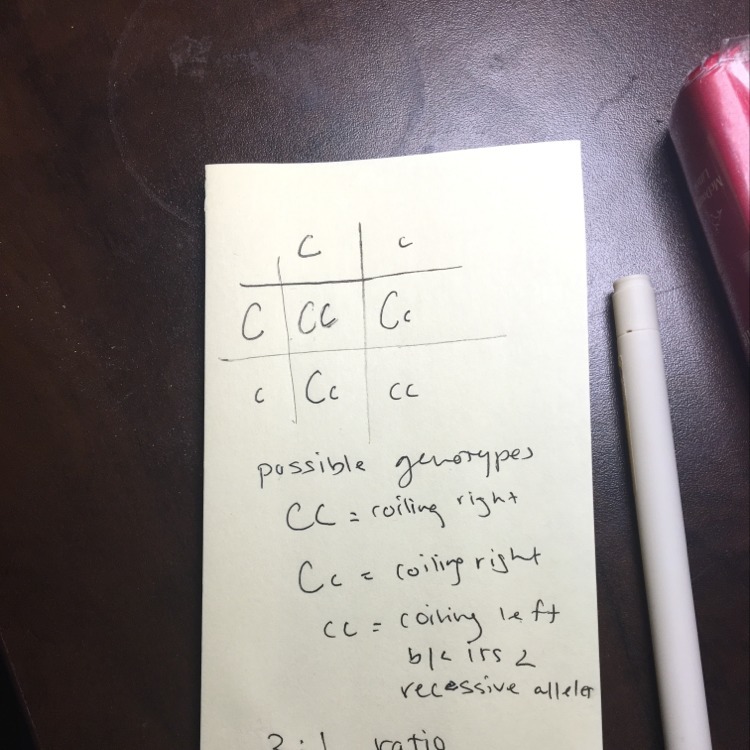 C c
C CC Cc
c Cc cc
possible genotypes
CC = coiling right
Cc = coiling right
cc = coiling left
b/c its 2
recessive alleles
3:1 ratio